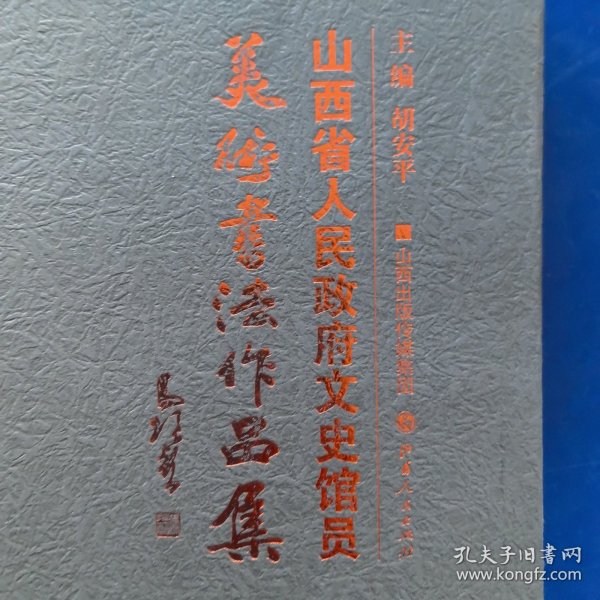 主编 胡安平
山西出版传媒集团 山西人民出版社
山西省人民政府文史馆员
美術書法作品集
孔夫子旧书网
www.kongfz.com